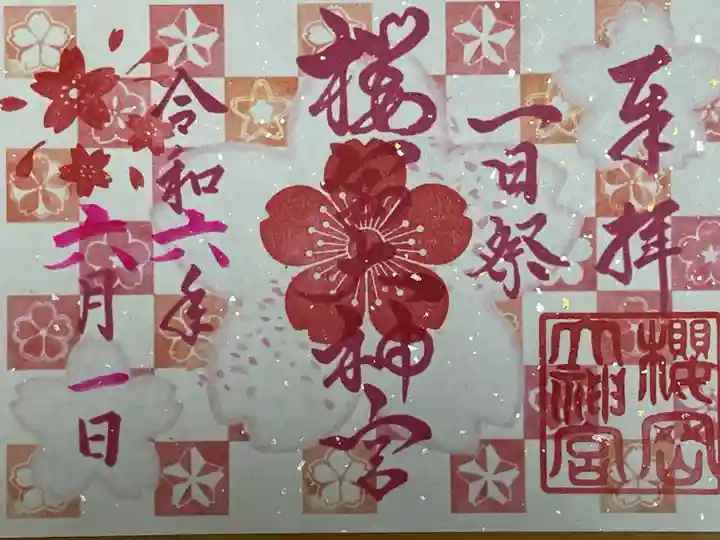 奉拝
一日祭
櫻岡大神宮
令和六年
六月一日
櫻岡
大神宮